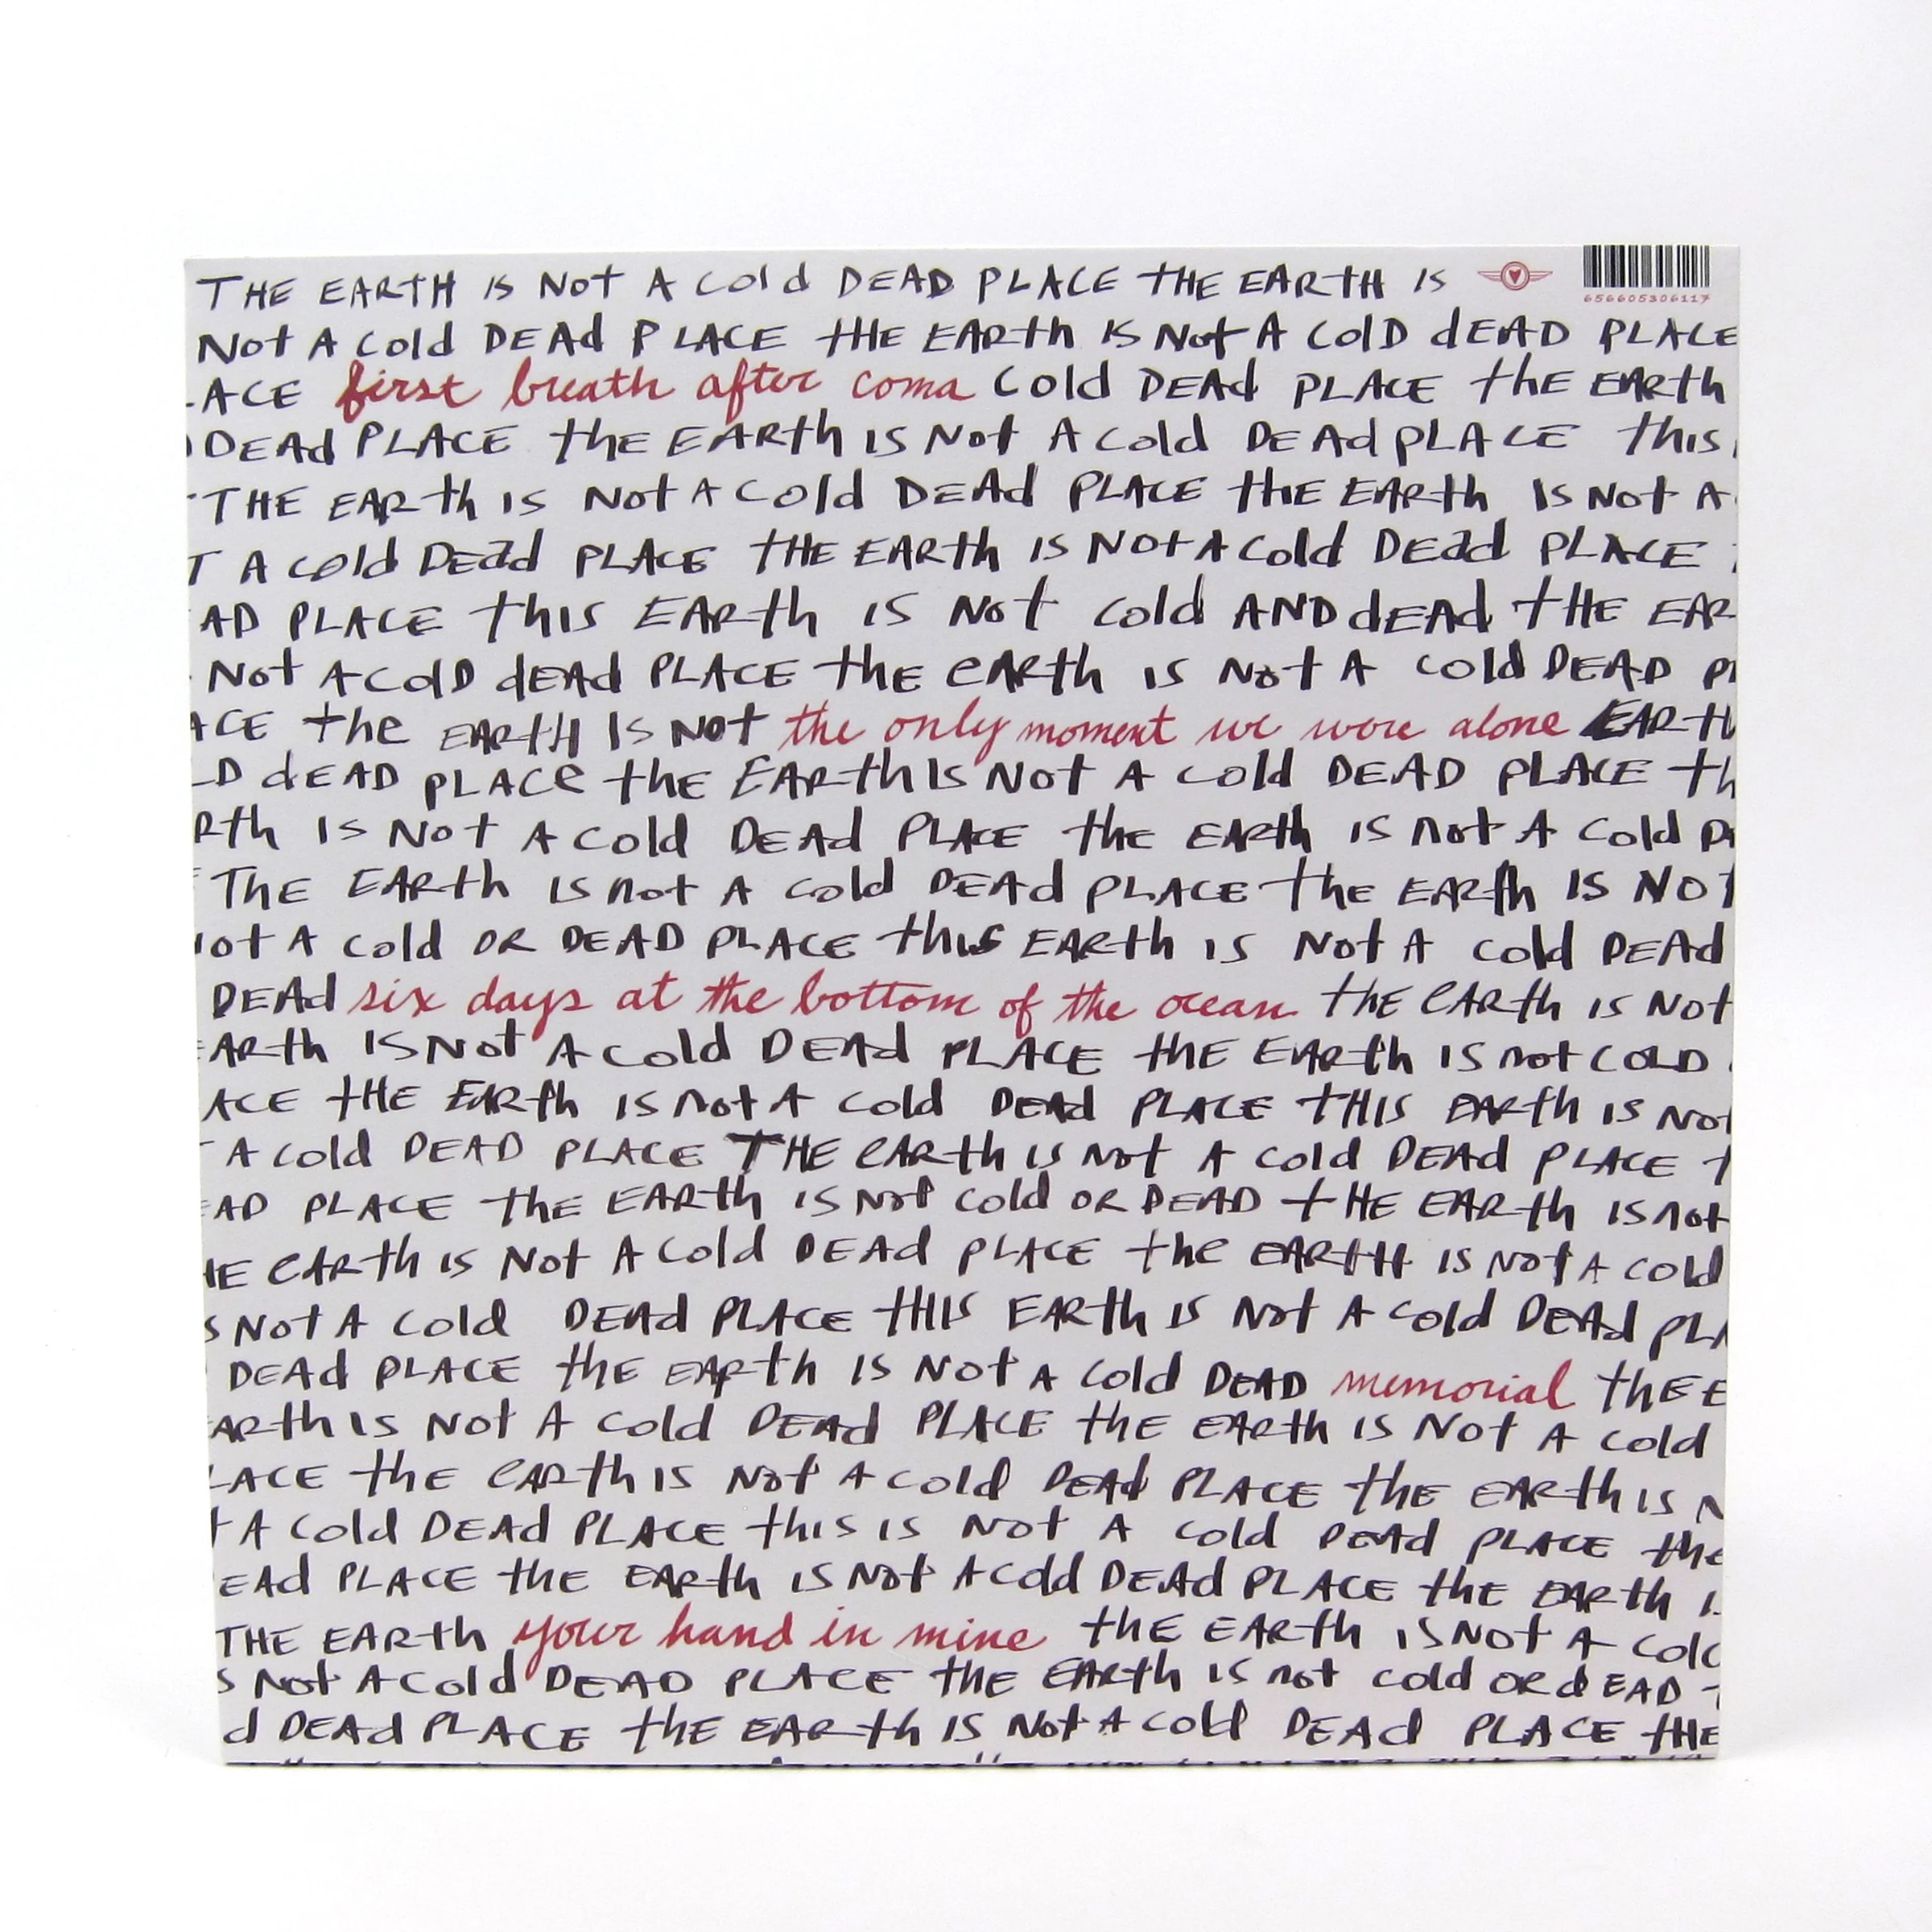 THE EARTH IS NOT A Cold DEAD PLACE tHE EARTH IS
656605306117
Not A Cold DEAd PLACE tHE EARth IS Not A ColD dEAD PLACE
ACE first breath after coma Cold DEAd PLACE thE EARth
DEAd PLACE thE EARth IS Not A Cold DEAd pLACE this
THE EARth IS Not A Cold DEAd PLACE tHE EARth IS Not A
T A Cold DEad PLACE tHE EARth IS NOt A Cold DEad PLACE
AD PLACE this EARth IS Not Cold AND dEAd tHE EAR
Not A ColD dEAd PLACE thE eARth IS Not A Cold DEAD P
ACE the EARtH IS NOt the only moment we were alone EARtH
LD dEAD PLACe thE EARth IS Not A Cold DEAD PLACE th
Rth IS Not A Cold DEAd PLACE thE EARth IS not A Cold D
ThE EARth IS not A Cold DEAd PLACE thE EARth IS NOT
ot A Cold OR DEAD PLACE this EARth IS Not A Cold DEAd
DEAd six days at the bottom of the ocean thE eARth IS Not
EARth IS Not A Cold DEAd PLACE tHE EARth IS not COLD
ACE tHE EARth IS not A Cold DEAd PLACE tHIS EARth IS NOt
A Cold DEAD PLACE THE eARth IS Not A Cold DEAd PLACE t
EAD PLACE thE EARth IS Not Cold OR DEAD tHE EARth IS not
HE eARth IS Not A Cold DEAd PLACE the EARtH IS Not A Cold
S Not A Cold DEAd PLACE tHIS EARth IS Not A Cold DEAd PLA
DEAd PLACE thE EARth IS Not A Cold DEAD memorial thE E
ARth IS Not A Cold DEAd PLACE thE EARth IS Not A Cold
LACE thE eARth IS Not A Cold DEAd PLACE thE EARth IS N
t A Cold DEAd PLACE this IS Not A Cold DEAd PLACE the
EAd PLACE thE EARth IS Not A Cold DEAd PLACE thE EARth I
THE EARth your hand in mine thE EARth IS Not A Col
S Not A Cold DEAD PLACE thE EARth IS not Cold OR dEAD
d DEAd PLACE thE EARth IS Not A Cold DEAd PLACE tHE